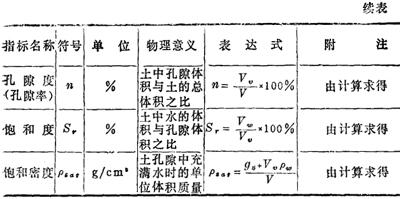 续表
指标名称 符号 单位 物理意义 表达式 附注
孔隙度(孔隙率) n % 土中孔隙体积与土的总体积之比 n=V_v/V×100% 由计算求得
饱和度 S_r % 土中水的体积与孔隙体积之比 S_r=V_w/V_v×100% 由计算求得
饱和密度 ρ_sat g/cm³ 土孔隙中充满水时的单位体积质量 ρ_sat=(g_s+V_vρ_w)/V 由计算求得